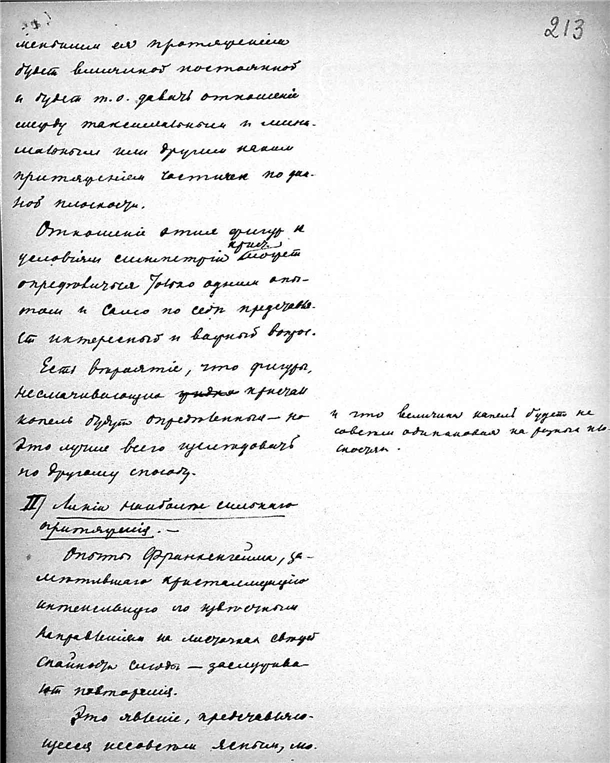 213
меньшим ея протяженiем
будет величиной постоянной
и будет т.о. давать отношенiе
между максимальным и мини-
мальным или другим каким
притяженiем частичек по дан-
ной плоскости.
Отношенiе этих фигур к
условiям симметрiи крист. может
определиться только одним опы-
том и само по себе представля-
ет интересный и важный вопрос.
Есть вѣроятiе, что фигуры,
несмачивающих кристал
капель будут определенныя — но
это лучше всего изслѣдовать
по другому способу.
и что величина капель будет не
совсем одинаковая на разных пло-
скостях.
II) Линiи наиболѣе сильнаго
притяженiя. —
Опыты Франкенгейма, за-
мѣтившаго кристаллизацiю
по известным
направленiям на листочках
спайности слюды — заслужива-
ют повторенiя.
Это явленiе, представляю-
щееся несовсѣм ясным, мо-